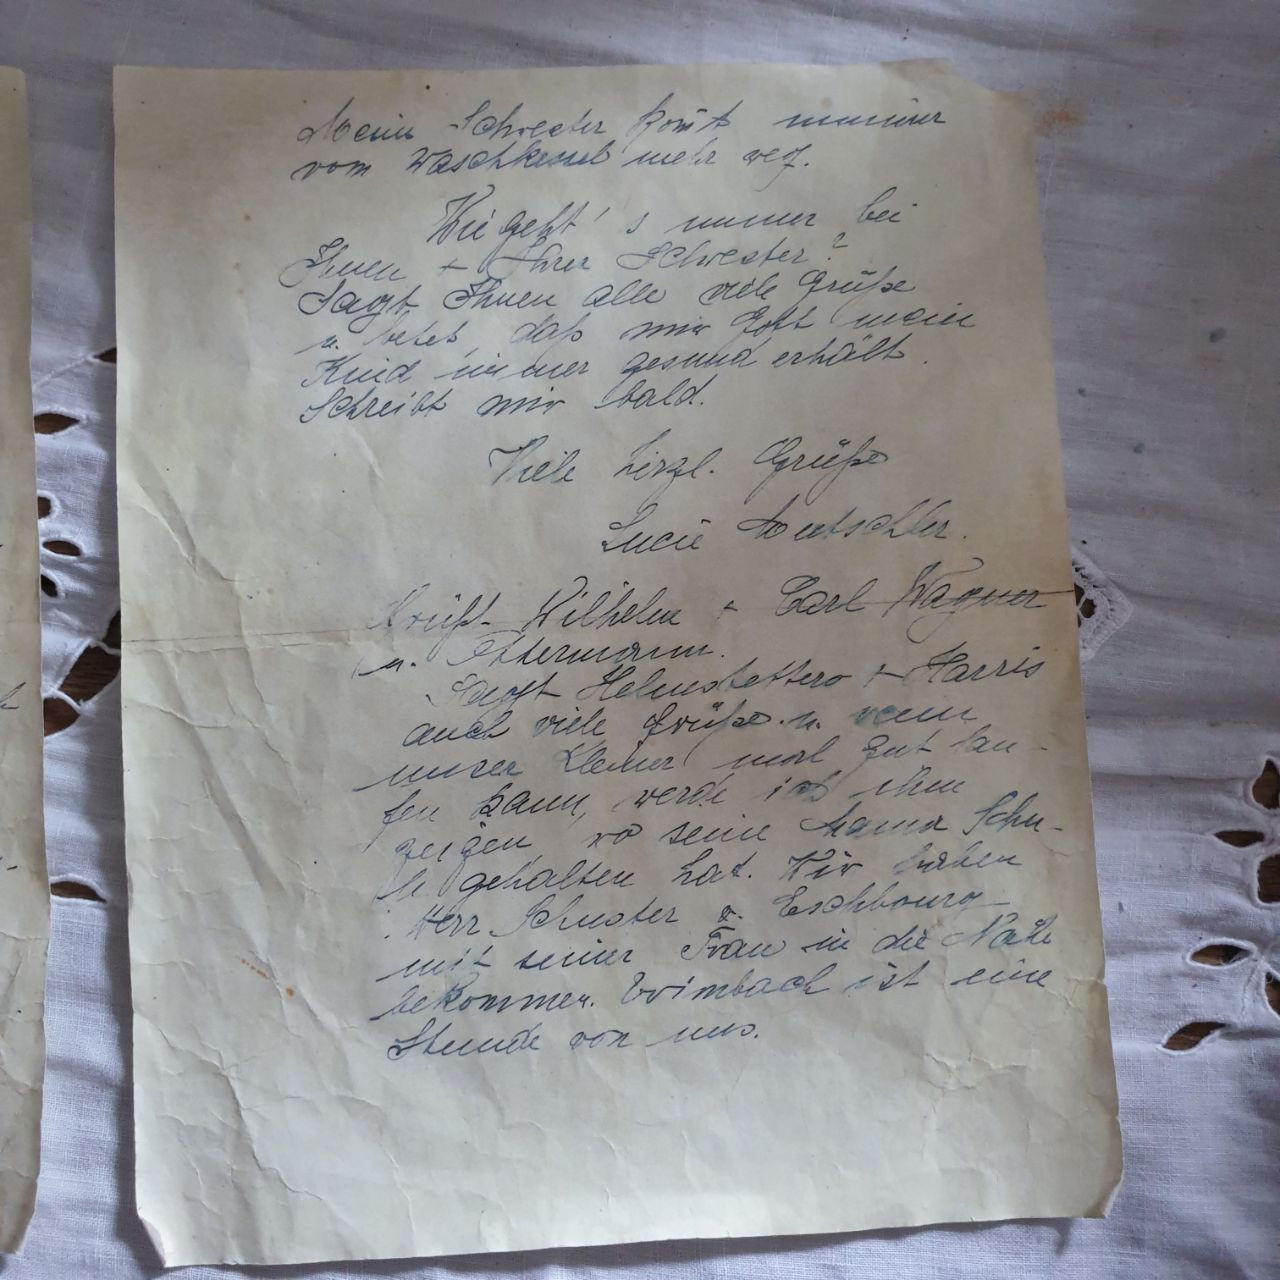 Meine Schwester komt nimmer
vom Waschkessel mehr weg.
Wie geht's immer bei
Ihnen + Ihrer Schwester?
Sagt Ihnen alle viele Grüße
u. betet, daß mir Gott mein
Kind immer gesund erhält.
Schreibt mir bald.
Viele herzl. Grüße
Lucie Mutschler.
Grüßt Wilhelm + Carl Wagner
u. Ottermann.
Sagt Helmstettero + Harris
auch viele Grüße u. wenn
unser Kleiner mal gut lau-
fen kann, werde ich ihm
zeigen wo seine Mama Schu-
le gehalten hat. Wir haben
Herr Schuster v. Eschbourg
mit seiner Frau in die Nähe
bekommen. Wimbach ist eine
Stunde von uns.